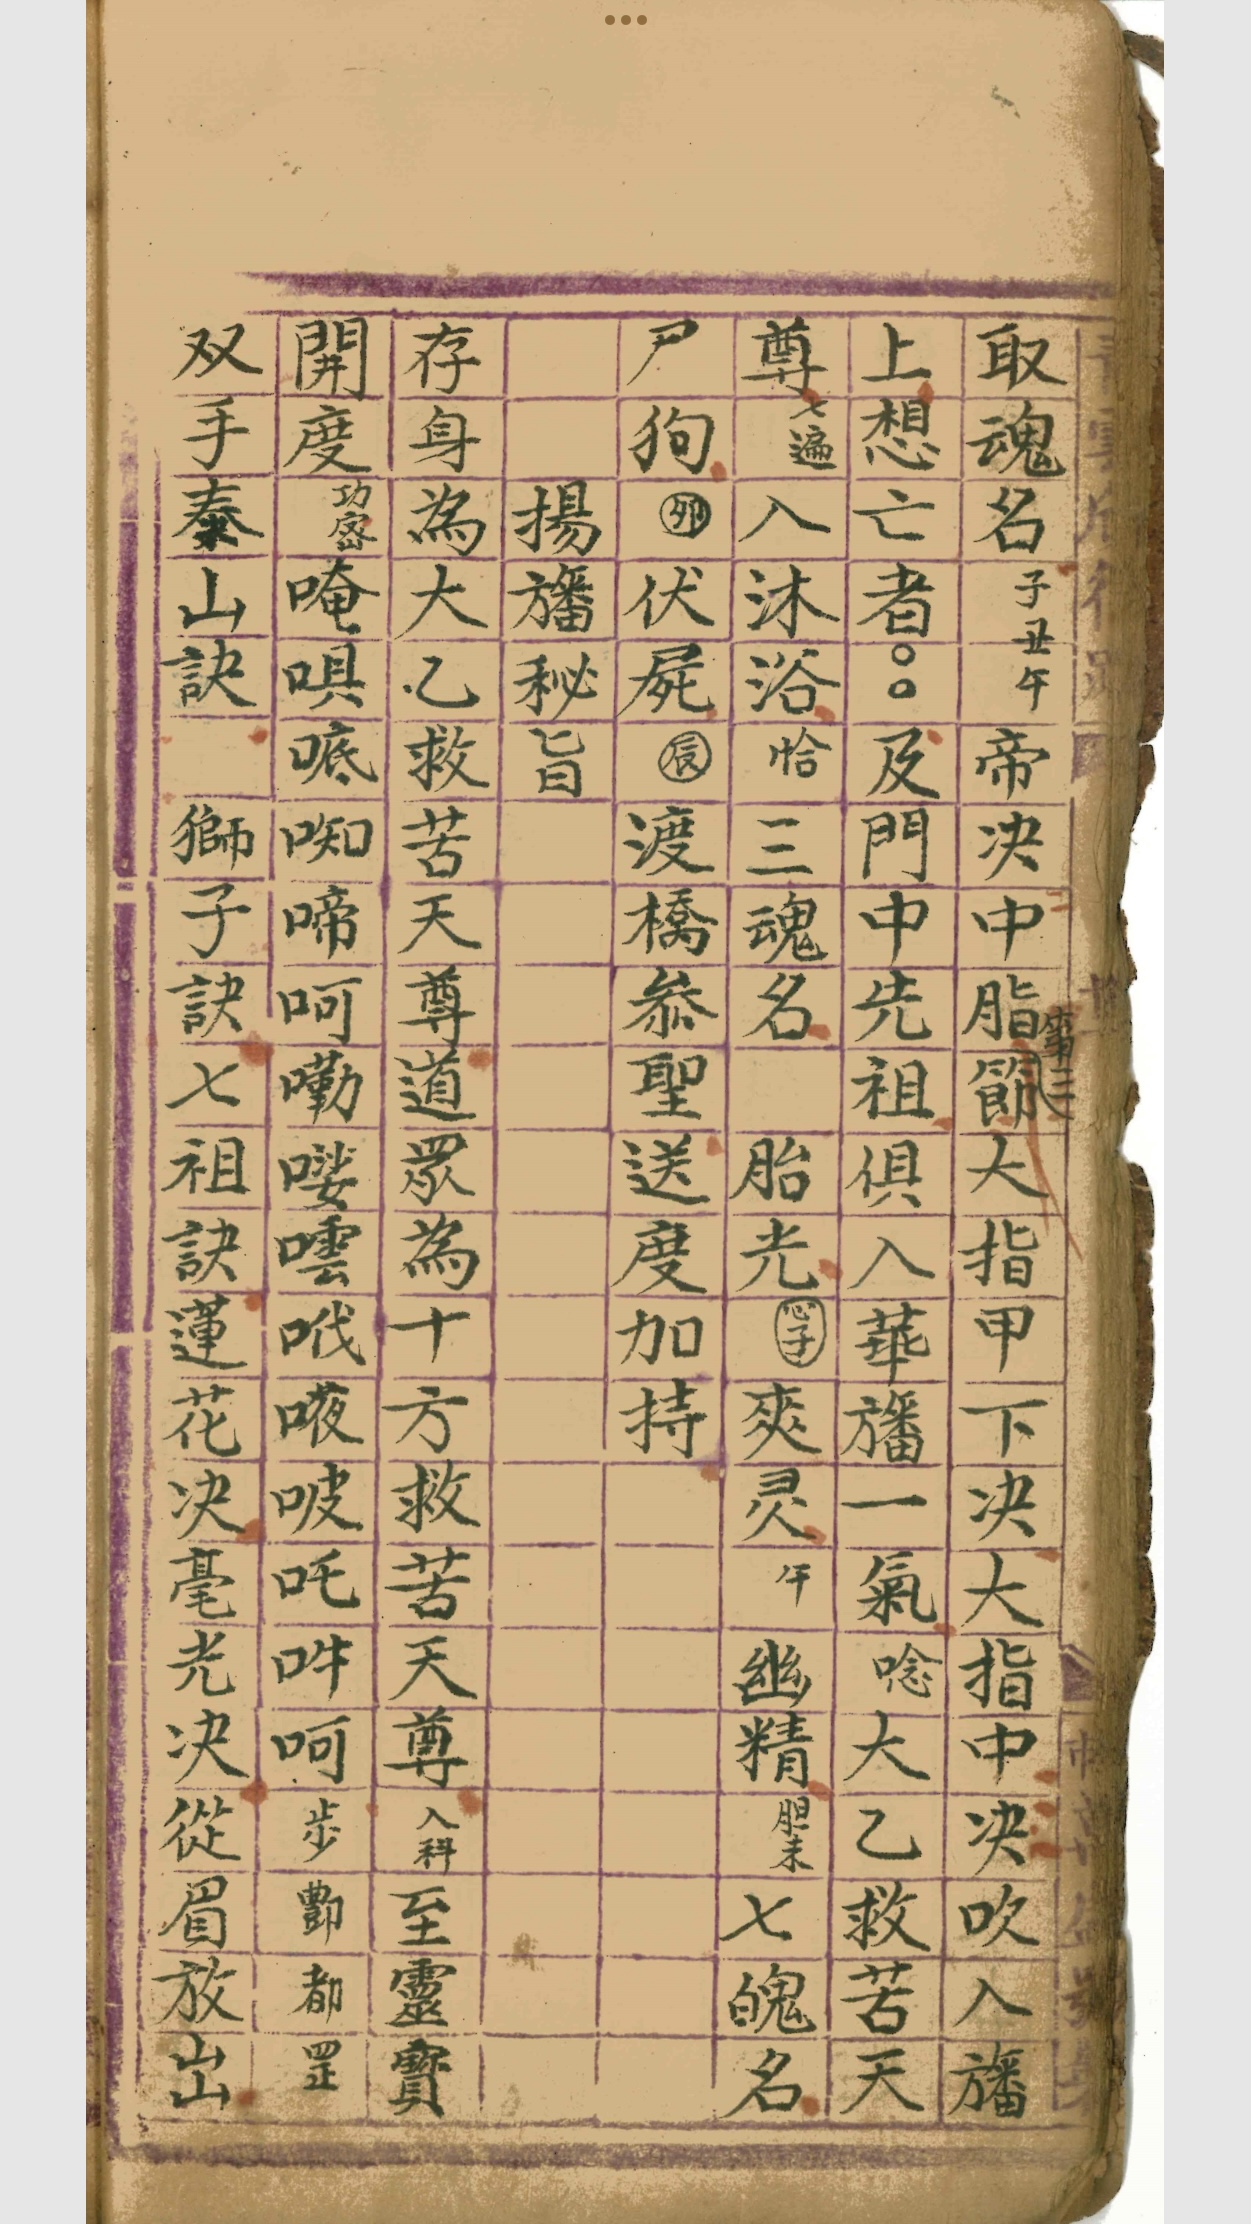 取魂名子丑午帝决中脂節大指甲下决大指中决吹入旛
第三
上想亡者○○及門中先祖俱入華旛一氣唸大乙救苦天
尊七遍入沐浴恰三魂名胎光子爽灵午幽精胆未七魄名
尸狗卯伏屍辰渡橋叅聖送度加持
揚旛秘旨
存身為大乙救苦天尊道眾為十方救苦天尊入科至靈寶
開度功密唵唄㖳啝啼呵嘞嘙囈哦㖡啵吒吽呵步酆都罡
双手泰山訣獅子訣七祖訣蓮花决毫光决從眉放出